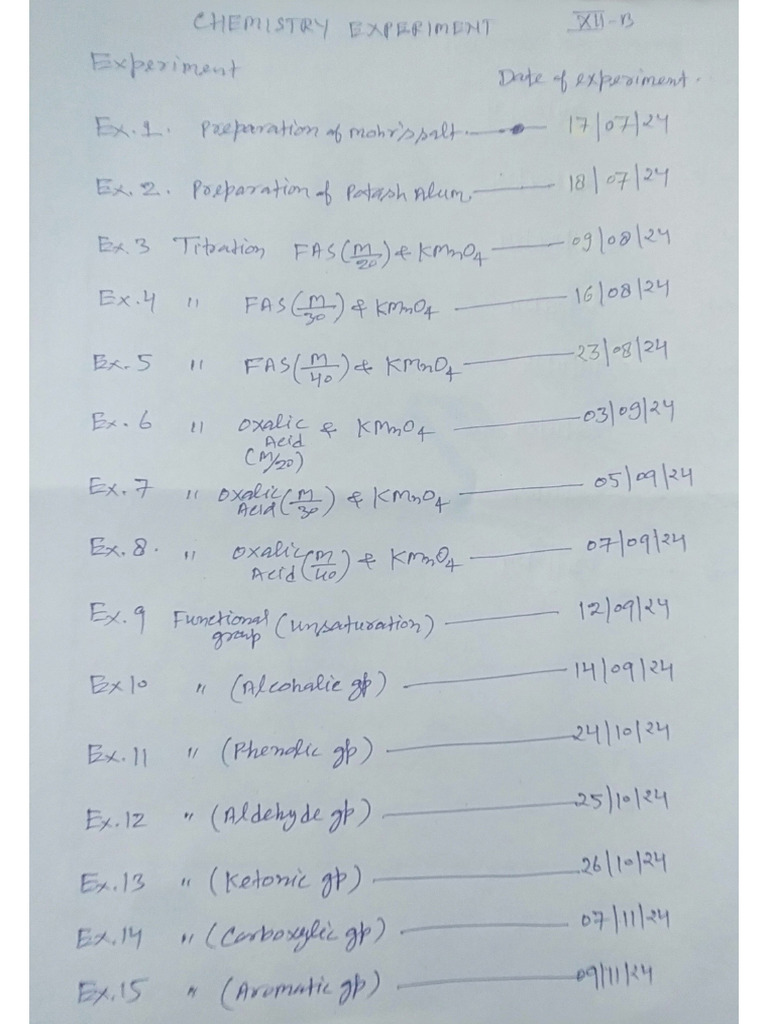 CHEMISTRY EXPERIMENT XII-B
Experiment Date of experiment.
Ex.1. Preparation of mohr's salt. 17/07/24
Ex. 2. Preparation of Potash Alum. 18/07/24
Ex.3 Titration FAS (M/20) & KMnO4 09/08/24
Ex.4 " FAS (M/30) & KMnO4 16/08/24
Ex. 5 " FAS (M/40) & KMnO4 23/08/24
Ex. 6 " Oxalic Acid (M/20) & KMnO4 03/09/24
Ex. 7 " Oxalic Acid (M/30) & KMnO4 05/09/24
Ex. 8. " Oxalic Acid (M/40) & KMnO4 07/09/24
Ex. 9 Functional group (unsaturation) 12/09/24
Ex 10 " (Alcohalic gp) 14/09/24
Ex. 11 " (Phenolic gp) 24/10/24
Ex. 12 " (Aldehyde gp) 25/10/24
Ex. 13 " (Ketonic gp) 26/10/24
Ex. 14 " (Carboxylic gp) 07/11/24
Ex. 15 " (Aromatic gp) 09/11/24